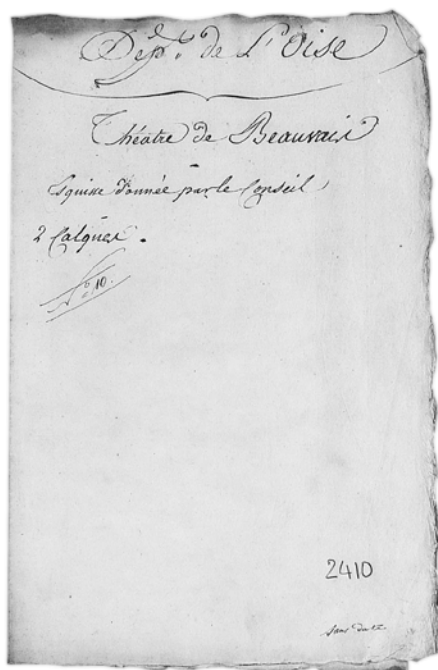 Dép.t de L'Oise
Théatre de Beauvais
Esquisse donnée par le Conseil
2 Calques.
N.o 10.
2410
sans date